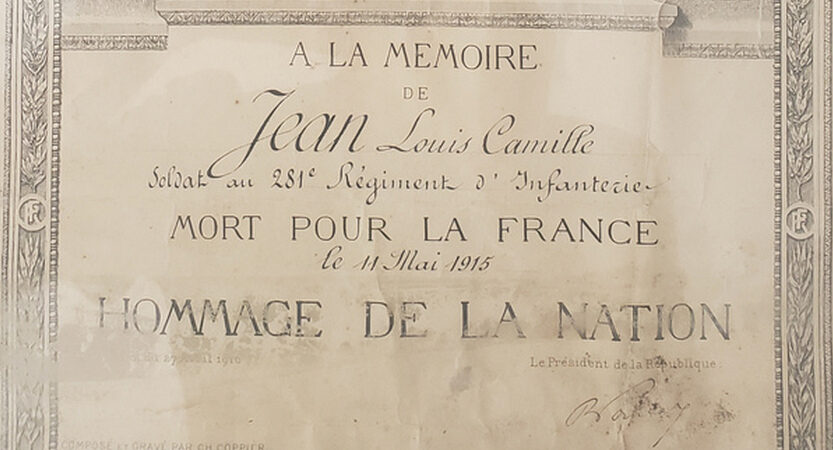 A LA MEMOIRE
DE
Jean Louis Camille
Soldat au 281e Régiment d'Infanterie
MORT POUR LA FRANCE
le 11 Mai 1915
HOMMAGE DE LA NATION
27 Avril 1916
Le Président de la République
COMPOSÉ ET GRAVÉ PAR CH. COPPIER
RF
RF